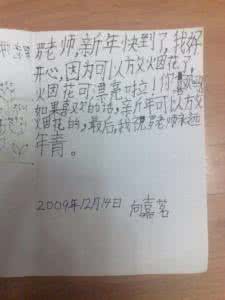 老师,新年快到了,我好
开心,因为可以放烟花了,
烟花可漂亮啦!你喜欢吗
如果喜欢的话,新年可以放
烟花的,最后,我祝老师永远
年青。
2009年12月14日 向嘉茗